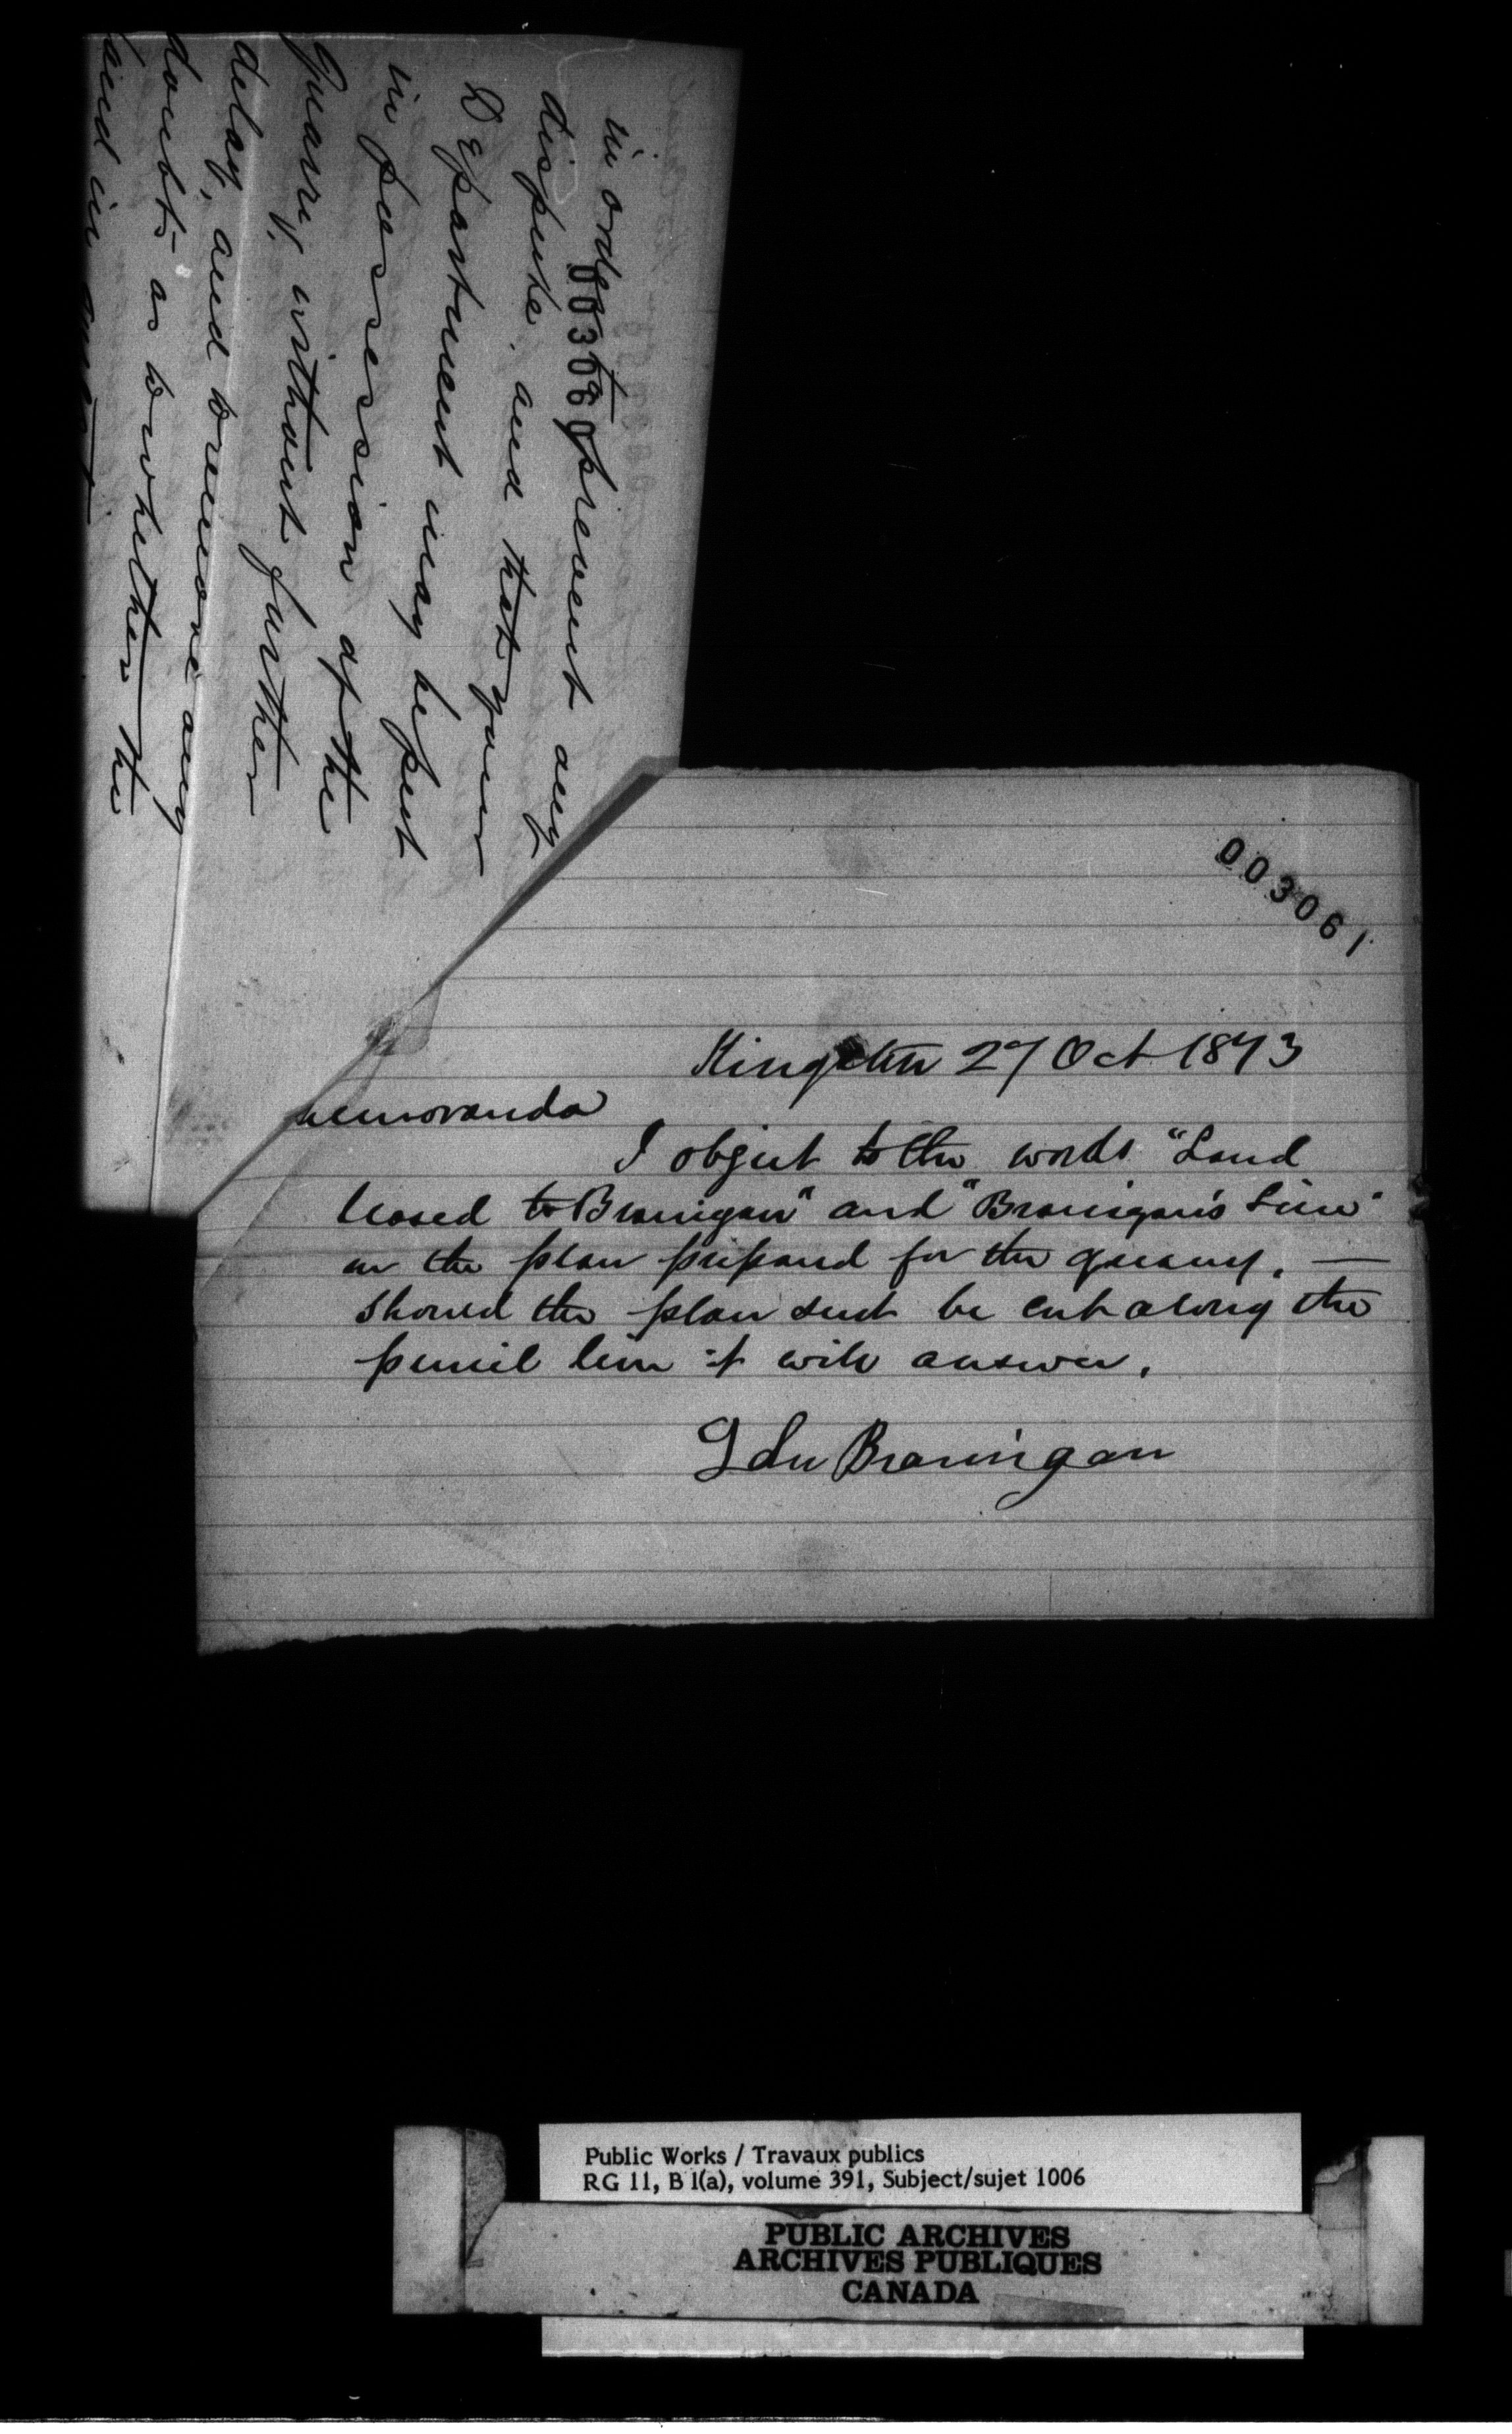 in order to prevent any
dispute, and that your
Department may be put
in possession of the
Quarry, without further
delay, and remove any
doubts as to whether the
and in
003060
003061
Kingston 27 Oct 1873
memoranda
I object to the words "Land
leased to Branigan" and "Branigan's Line"
on the plan prepared for the quarry. —
Should the plan sent be cut along the
pencil line it will answer.
Branigan
Public Works / Travaux publics
RG 11, B 1(a), volume 391, Subject/sujet 1006
PUBLIC ARCHIVES
ARCHIVES PUBLIQUES
CANADA